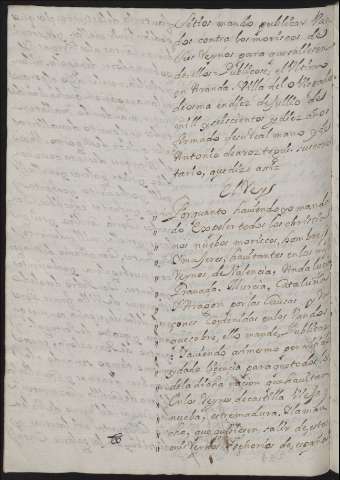 mando publicar
dos contra los moriscos de
sus Reynos para que saliesen
de ellos. Publicose el
en Aranda Villa del obispado
de osma en diez de Jullio de
mill y seiscientos y diez años
firmado de su real mano y de
Antonio de aroztegui su secre
tario, que dize assi
El Rey
Porquanto haviendo yo manda
do Expeler todos los christia
nos nuebos moriscos, hombres y
mugeres, havitantes en los
Reynos de Valencia, Andalucia
Granada, Murcia, Cataluña
y Aragon por las Causas y
zones Contenidas en los Vandos
que sobre ello mande Publicar
y haviendo asimismo
dado licencia para que todos los
de la dicha nacion que havitan
en los Reynos de castilla Vieja
nueba, estremadura, y la man
cha, que quisiesen salir de estos
mis Reynos y señorios de españa